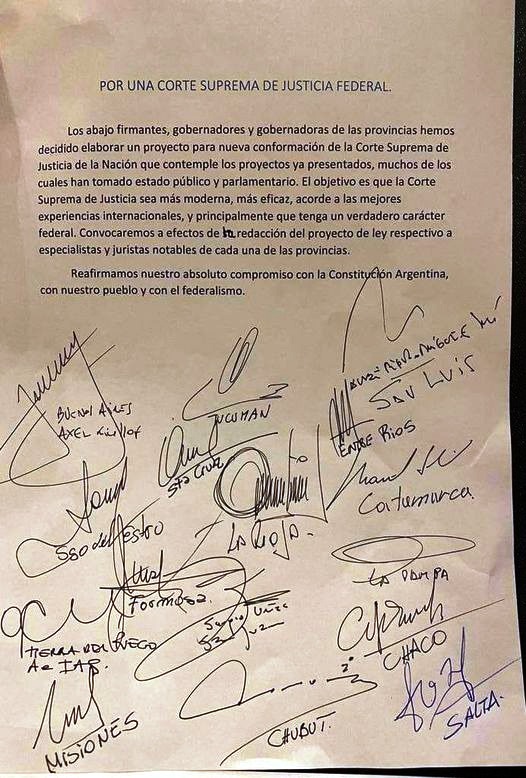 POR UNA CORTE SUPREMA DE JUSTICIA FEDERAL.
Los abajo firmantes, gobernadores y gobernadoras de las provincias hemos
decidido elaborar un proyecto para nueva conformación de la Corte Suprema de
Justicia de la Nación que contemple los proyectos ya presentados, muchos de los
cuales han tomado estado público y parlamentario. El objetivo es que la Corte
Suprema de Justicia sea más moderna, más eficaz, acorde a las mejores
experiencias internacionales, y principalmente que tenga un verdadero carácter
federal. Convocaremos a efectos de la redacción del proyecto de ley respectivo a
especialistas y juristas notables de cada una de las provincias.
Reafirmamos nuestro absoluto compromiso con la Constitución Argentina,
con nuestro pueblo y con el federalismo.
BUENOS AIRES
AXEL Kicillof
TUCUMAN
SAN LUIS
ENTRE RIOS
STA CRUZ
Catamarca
SGO del Estro
LA RIOJA.
LA PAMPA
Formosa.
TIERRA DEL FUEGO
Ae IAS.
CHACO
MISIONES
CHUBUT.
SALTA.